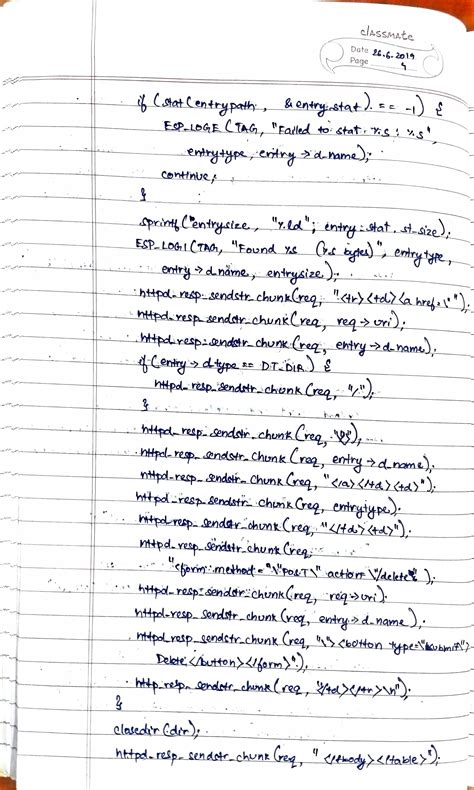 classmate
Date 26.6.2019
Page 4
if (stat(entrypath, &entry_stat) == -1) {
ESP_LOGE(TAG, "Failed to stat %s : %s",
entrytype, entry->d_name);
continue;
}
sprintf(entrysize, "%ld", entry_stat.st_size);
ESP_LOGI(TAG, "Found %s (%s bytes)", entrytype,
entry->d_name, entrysize);
httpd_resp_sendstr_chunk(req, "<tr><td><a href=\"");
httpd_resp_sendstr_chunk(req, req->uri);
httpd_resp_sendstr_chunk(req, entry->d_name);
if (entry->d_type == DT_DIR) {
httpd_resp_sendstr_chunk(req, "/");
}
httpd_resp_sendstr_chunk(req,
httpd_resp_sendstr_chunk(req, entry->d_name);
httpd_resp_sendstr_chunk(req, "</a></td><td>");
httpd_resp_sendstr_chunk(req, entrytype);
httpd_resp_sendstr_chunk(req, "</td><td>");
httpd_resp_sendstr_chunk(req,
"<form method=\"POST\" action \"/delete");
httpd_resp_sendstr_chunk(req, req->uri);
httpd_resp_sendstr_chunk(req, entry->d_name);
httpd_resp_sendstr_chunk(req, "\"><button type=\"submit\">
Delete</button></form>");
http_resp_sendstr_chunk(req, "</td></tr>\n");
}
closedir(dir);
httpd_resp_sendstr_chunk(req, "</tbody></table>");